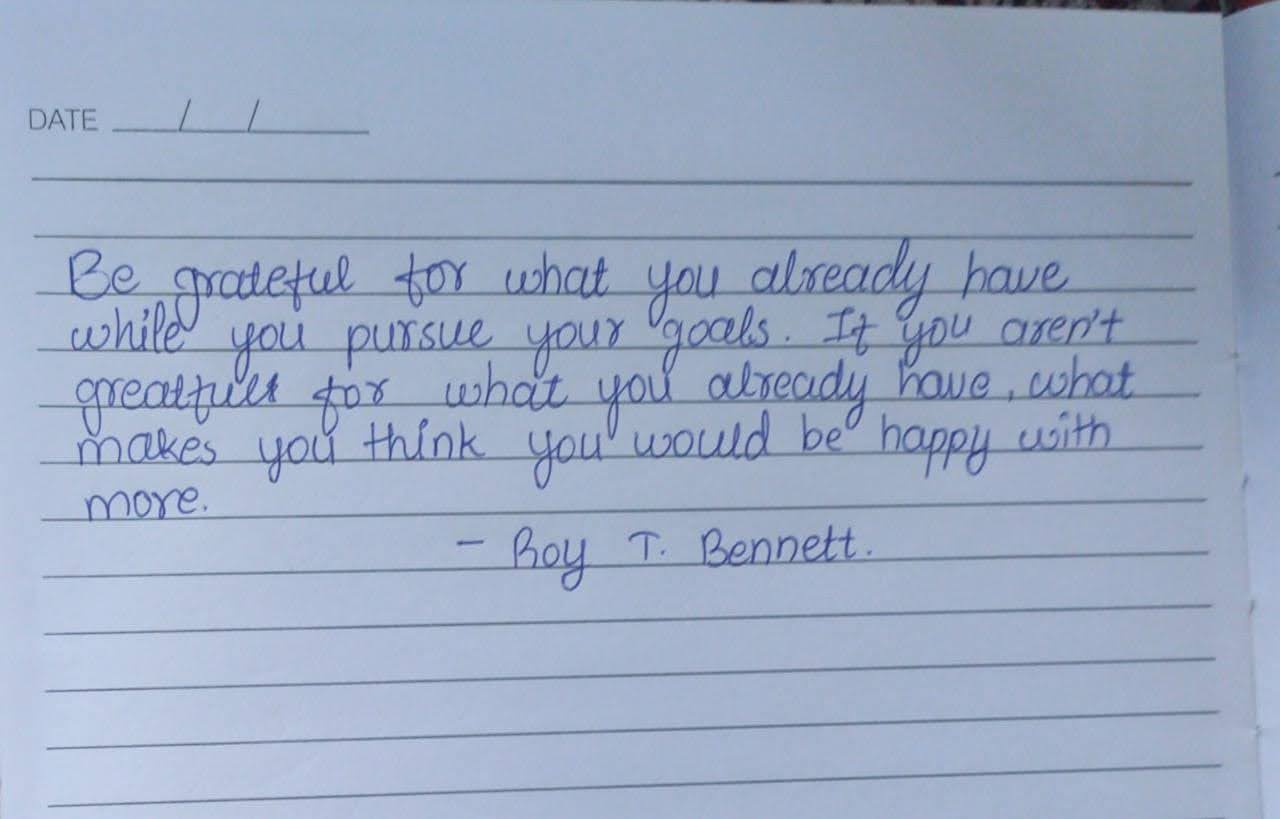 DATE / /
Be grateful for what you already have
while you pursue your goals. If you aren't
greatfull for what you already have, what
makes you think you would be happy with
more.
- Roy T. Bennett.